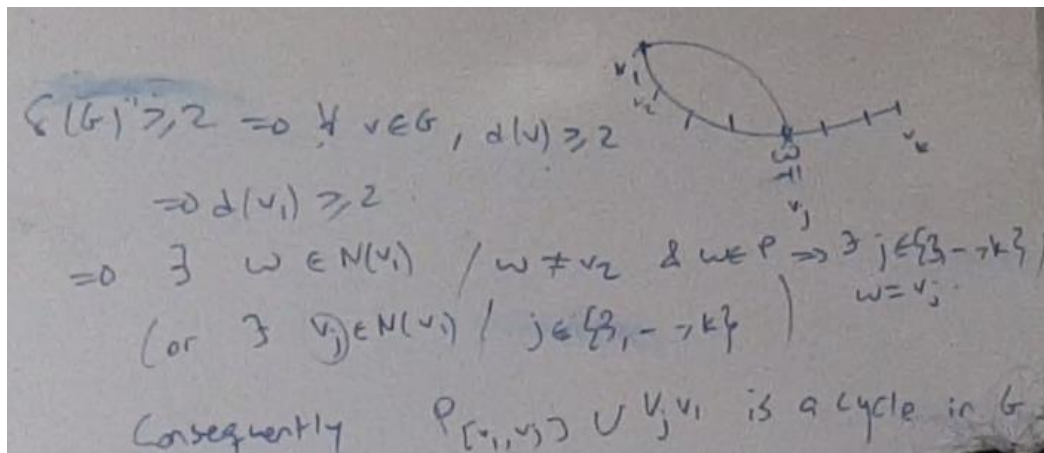 v₁
v₂
δ(G) ≥ 2 ⇒ ∀ v ∈ G, d(v) ≥ 2
v_k
w = v_j
⇒ d(v₁) ≥ 2
⇒ ∃ w ∈ N(v₁) / w ≠ v₂ & w ∈ P ⇒ ∃ j ∈ {3, - , k} /
w = v_j
(or ∃ v_j ∈ N(v₁) / j ∈ {3, - , k} )
Consequently P_[v₁,v_j] ∪ v_j v₁ is a cycle in G